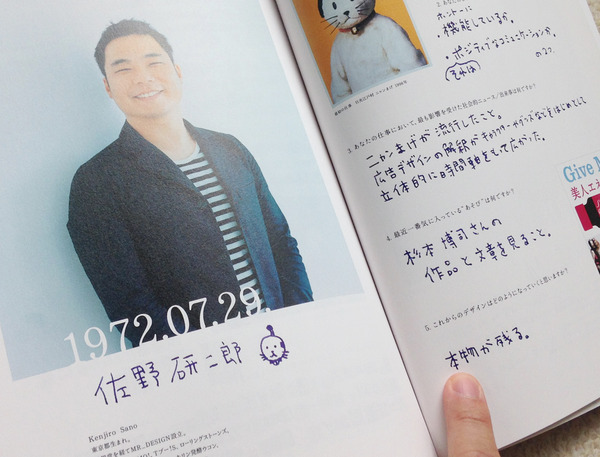 1972.07.29.
佐野研二郎
Kenjiro Sano
東京都生まれ。
を経てMR_DESIGN設立。
ローリングストーンズ。
ホントーに
機能しているか。
・ポジティブなコミュニケーションか
それは
の2つ。
3. あなたの仕事において、最も影響を受けた社会的ニュース/出来事は何ですか?
ニャンまげが流行したこと。
広告デザインの
立体的に時間軸をもて
4. 最近一番気に入っている"あそび"は何ですか?
杉本博司さんの
作品と文章を見ること。
5. これからのデザインはどのようになっていくと思いますか?
本物が残る。
Give M
美人エ